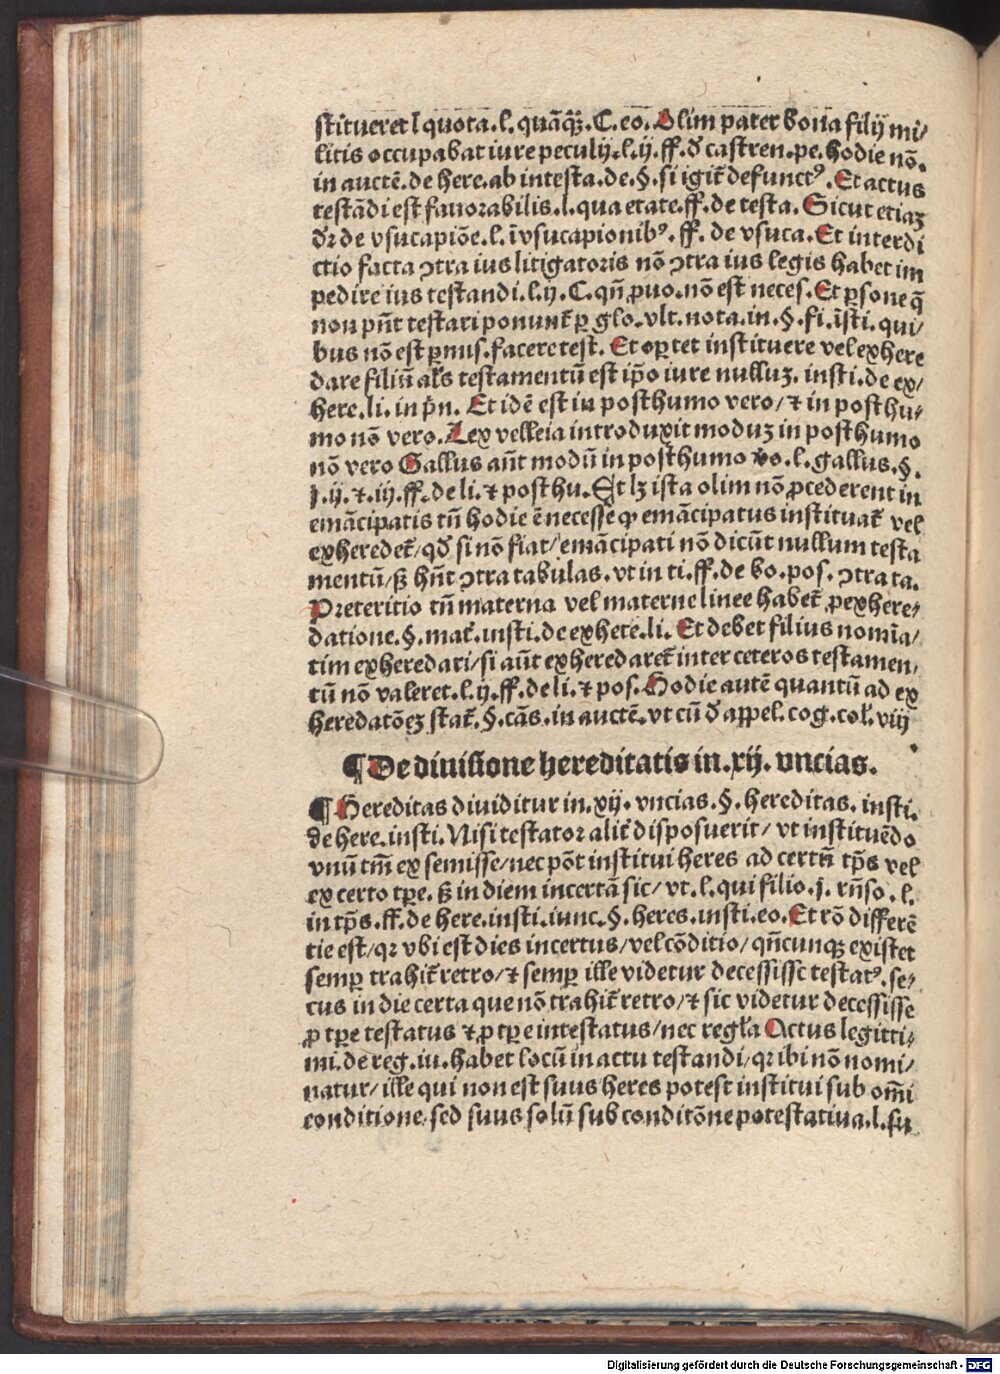 stitueret ĩ quota. l. quãq̃ʒ. C. eo. Olim pater bona filij mi/
litis occupabat iure peculij. l. ij. ff. ď castren. pe. hodie nõ.
in auctē. de here. ab intesta. de. §. si igit̃ defunctꝰ. Et actus
testãdi est fauorabilis. l. qua etate. ff. de testa. Sicut etiaʒ
ďr de vsucapiõe. l. ĩ vsucapionibꝰ. ff. de vsuca. Et interdi
ctio facta ↄtra ius litigatoris nõ ↄtra ius legis habet im
pedire ius testandi. l. ij. C. qñ ꝓuo. nõ est neces. Et ꝑsone q̃
non pñt testari ponunt̃ ꝑ glo. vlt. nota. in. §. fi. ĩsti. qui/
bus nõ est ꝑmis. facere test. Et oꝑtet instituere vel exhere
dare filiũ al̃s testamentũ est ip̃o iure nulluʒ. insti. de ex/
here. li. in p̃n. Et idē est in posthumo vero/ ⁊ in posthu/
mo nõ vero. Lex velleia introduxit moduʒ in posthumo
nõ vero Gallus aũt modũ in posthumo v̓o. l. gallus. §.
j. ij. ⁊. iij. ff. de li. ⁊ posthu. Et lʒ ista olim nõ ꝓcederent in
emãcipatis tñ hodie ē necesse ꝙ emãcipatus instituat̃ vel
exheredet̃/ qď si nõ fiat/ emãcipati nõ dicũt nullum testa
mentũ/ ß hñt ↄtra tabulas. vt in ti. ff. de bo. pos. ↄtra ta.
Preteritio tñ materna vel materne linee habet̃ ꝓ exhere/
datione. §. mat̃. insti. de exhere. li. Et debet filius nomĩa/
tim exheredari/ si aũt exheredaret̃ inter ceteros testamen/
tũ nõ valeret. l. ij. ff. de li. ⁊ pos. Hodie autē quantũ ad ex
heredatõeʒ stat̃. §. cãs. in auctē. vt cũ ď appel. cog. col̃. viij
¶ De diuisione hereditatis in. xij. vncias.
¶ Hereditas diuiditur in. xij. vncias. §. hereditas. insti.
de here. insti. Nisi testator alit̃ disposuerit/ vt instituēdo
vnũ tm̃ ex semisse/ nec põt institui heres ad certũ tp̃s vel
ex certo tꝑe. ß in diem incertã sic/ vt. l. qui filio. j. rñso. l.
in tp̃s. ff. de here. insti. iunc. §. heres. insti. eo. Et rõ differē
tie est/ qꝛ vbi est dies incertus/ vel cõditio/ qñcunqʒ existet
semꝑ trahit̃ retro/ ⁊ semꝑ ille videtur decessisse testatꝰ. se/
cus in die certa que nõ trahit̃ retro/ ⁊ sic videtur decessisse
ꝓ tꝑe testatus ⁊ ꝓ tꝑe intestatus/ nec regl̃a Actus legitti/
mi. de reg. iu. habet locũ in actu testandi/ qꝛ ibi nõ nomi/
natur/ ille qui non est suus heres potest institui sub om̃i
conditione/ sed suus solũ sub conditõne potestatiua. l. su
Digitalisierung gefördert durch die Deutsche Forschungsgemeinschaft - DFG